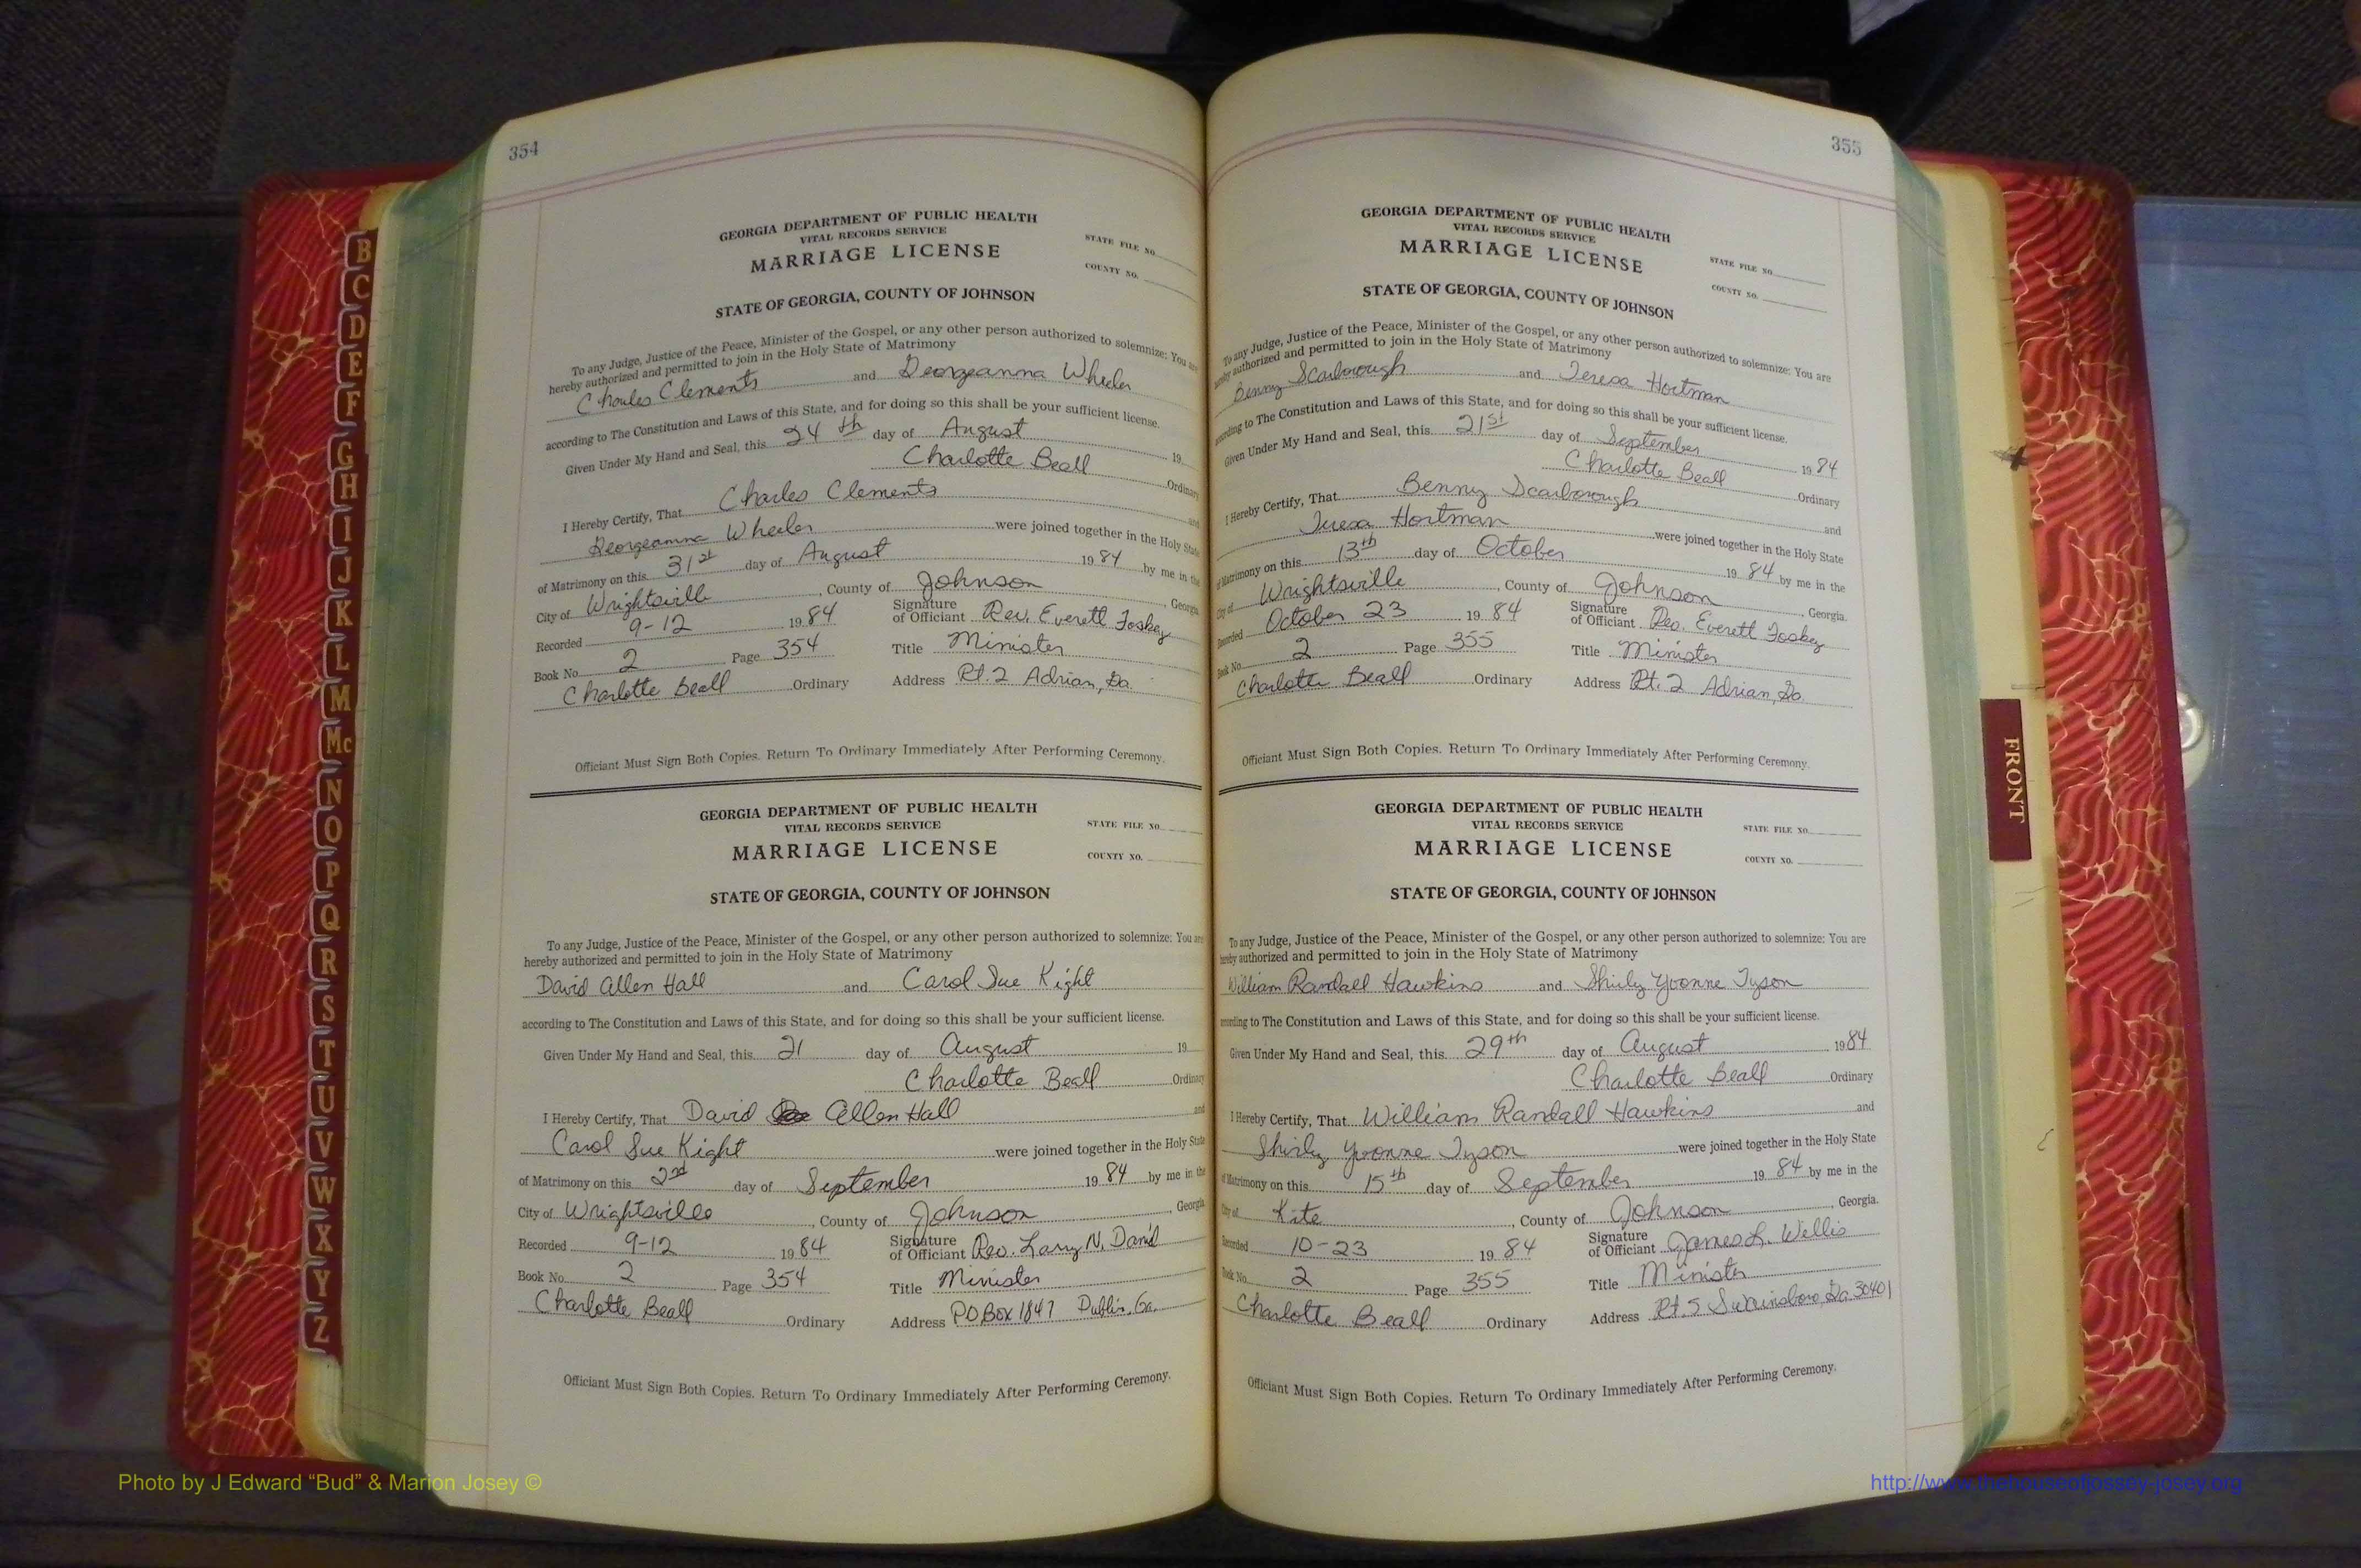 354
GEORGIA DEPARTMENT OF PUBLIC HEALTH
VITAL RECORDS SERVICE
MARRIAGE LICENSE
STATE FILE NO.
COUNTY NO.
STATE OF GEORGIA, COUNTY OF JOHNSON
To any Judge, Justice of the Peace, Minister of the Gospel, or any other person authorized to solemnize: You are
hereby authorized and permitted to join in the Holy State of Matrimony
Charles Clements and Georgeanna Wheeler
according to The Constitution and Laws of this State, and for doing so this shall be your sufficient license.
Given Under My Hand and Seal, this 24th day of August 19
Charlotte Beall Ordinary
I Hereby Certify, That Charles Clements and
Georgeanna Wheeler were joined together in the Holy State
of Matrimony on this 31st day of August 1984 by me in the
City of Wrightsville, County of Johnson, Georgia
Recorded 9-12 1984 Signature of Officiant Rev. Everett Foskey
Book No. 2 Page 354 Title Minister
Charlotte Beall Ordinary Address Rt. 2 Adrian, Ga.
Officiant Must Sign Both Copies. Return To Ordinary Immediately After Performing Ceremony.
GEORGIA DEPARTMENT OF PUBLIC HEALTH
VITAL RECORDS SERVICE
MARRIAGE LICENSE
STATE FILE NO.
COUNTY NO.
STATE OF GEORGIA, COUNTY OF JOHNSON
To any Judge, Justice of the Peace, Minister of the Gospel, or any other person authorized to solemnize: You are
hereby authorized and permitted to join in the Holy State of Matrimony
David Allen Hall and Carol Sue Kight
according to The Constitution and Laws of this State, and for doing so this shall be your sufficient license.
Given Under My Hand and Seal, this 21 day of August 19
Charlotte Beall Ordinary
I Hereby Certify, That David Allen Hall and
Carol Sue Kight were joined together in the Holy State
of Matrimony on this 2nd day of September 1984 by me in the
City of Wrightsville, County of Johnson, Georgia
Recorded 9-12 1984 Signature of Officiant Rev. Larry N. David
Book No. 2 Page 354 Title Minister
Charlotte Beall Ordinary Address PO Box 1847 Dublin, Ga.
Officiant Must Sign Both Copies. Return To Ordinary Immediately After Performing Ceremony.
355
GEORGIA DEPARTMENT OF PUBLIC HEALTH
VITAL RECORDS SERVICE
MARRIAGE LICENSE
STATE FILE NO.
COUNTY NO.
STATE OF GEORGIA, COUNTY OF JOHNSON
To any Judge, Justice of the Peace, Minister of the Gospel, or any other person authorized to solemnize: You are
hereby authorized and permitted to join in the Holy State of Matrimony
Benny Scarborough and Teresa Hortman
according to The Constitution and Laws of this State, and for doing so this shall be your sufficient license.
Given Under My Hand and Seal, this 21st day of September 1984
Charlotte Beall Ordinary
I Hereby Certify, That Benny Scarborough and
Teresa Hortman were joined together in the Holy State
of Matrimony on this 13th day of October 1984 by me in the
City of Wrightsville, County of Johnson, Georgia.
Recorded October 23 1984 Signature of Officiant Rev. Everett Foskey
Book No. 2 Page 355 Title Minister
Charlotte Beall Ordinary Address Rt. 2 Adrian, Ga.
Officiant Must Sign Both Copies. Return To Ordinary Immediately After Performing Ceremony.
GEORGIA DEPARTMENT OF PUBLIC HEALTH
VITAL RECORDS SERVICE
MARRIAGE LICENSE
STATE FILE NO.
COUNTY NO.
STATE OF GEORGIA, COUNTY OF JOHNSON
To any Judge, Justice of the Peace, Minister of the Gospel, or any other person authorized to solemnize: You are
hereby authorized and permitted to join in the Holy State of Matrimony
William Randall Hawkins and Shirly Yvonne Tyson
according to The Constitution and Laws of this State, and for doing so this shall be your sufficient license.
Given Under My Hand and Seal, this 29th day of August 1984
Charlotte Beall Ordinary
I Hereby Certify, That William Randall Hawkins and
Shirly Yvonne Tyson were joined together in the Holy State
of Matrimony on this 15th day of September 1984 by me in the
City of Kite, County of Johnson, Georgia.
Recorded 10-23 1984 Signature of Officiant James L. Willis
Book No. 2 Page 355 Title Minister
Charlotte Beall Ordinary Address Rt. 5 Swainsboro, Ga. 30401
Officiant Must Sign Both Copies. Return To Ordinary Immediately After Performing Ceremony.
B
C
D
E
F
G
H
I
J
K
L
M
Mc
N
O
P
Q
R
S
T
U
V
W
X
Y
Z
FRONT
Photo by J Edward “Bud” & Marion Josey ©
http://www.thehouseofjossey-josey.org